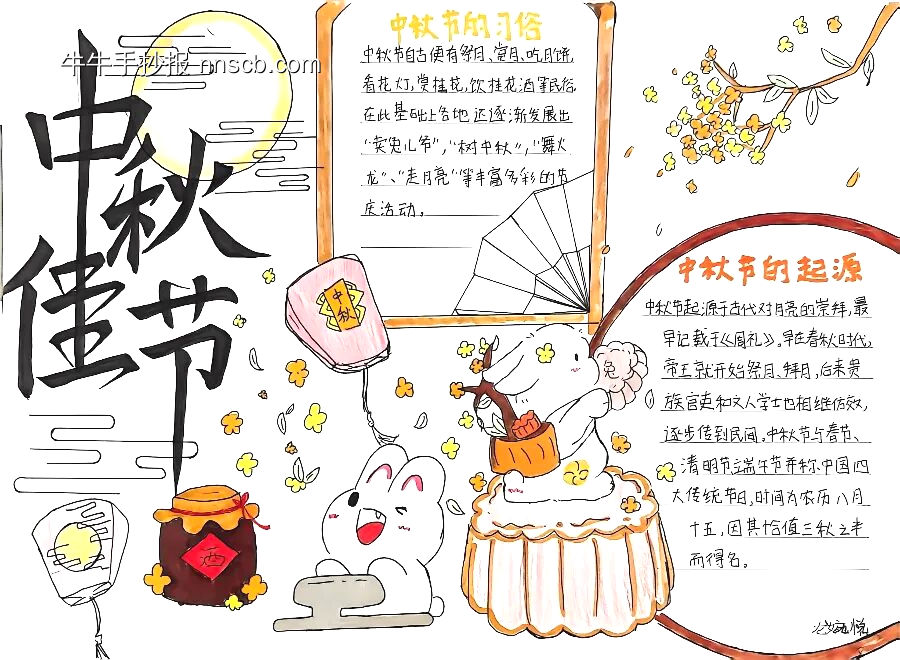 牛牛手抄报 nnscb.com
中秋
佳节
中秋节的习俗
中秋节自古便有祭月、赏月、吃月饼
看花灯,赏桂花,饮桂花酒等民俗
在此基础上各地还逐渐发展出
“卖兔儿爷”,“树中秋”,“舞火
龙”、“走月亮”等丰富多彩的节
庆活动。
中秋
中秋节的起源
中秋节起源于古代对月亮的崇拜,最
早记载于《周礼》。早在春秋时代,
帝王就开始祭月、拜月,后来贵
族官吏和文人学士也相继仿效,
逐步传到民间。中秋节与春节、
清明节端午节并称中国四
大传统节日,时间为农历八月
十五,因其恰值三秋之半
而得名。
兔
酒